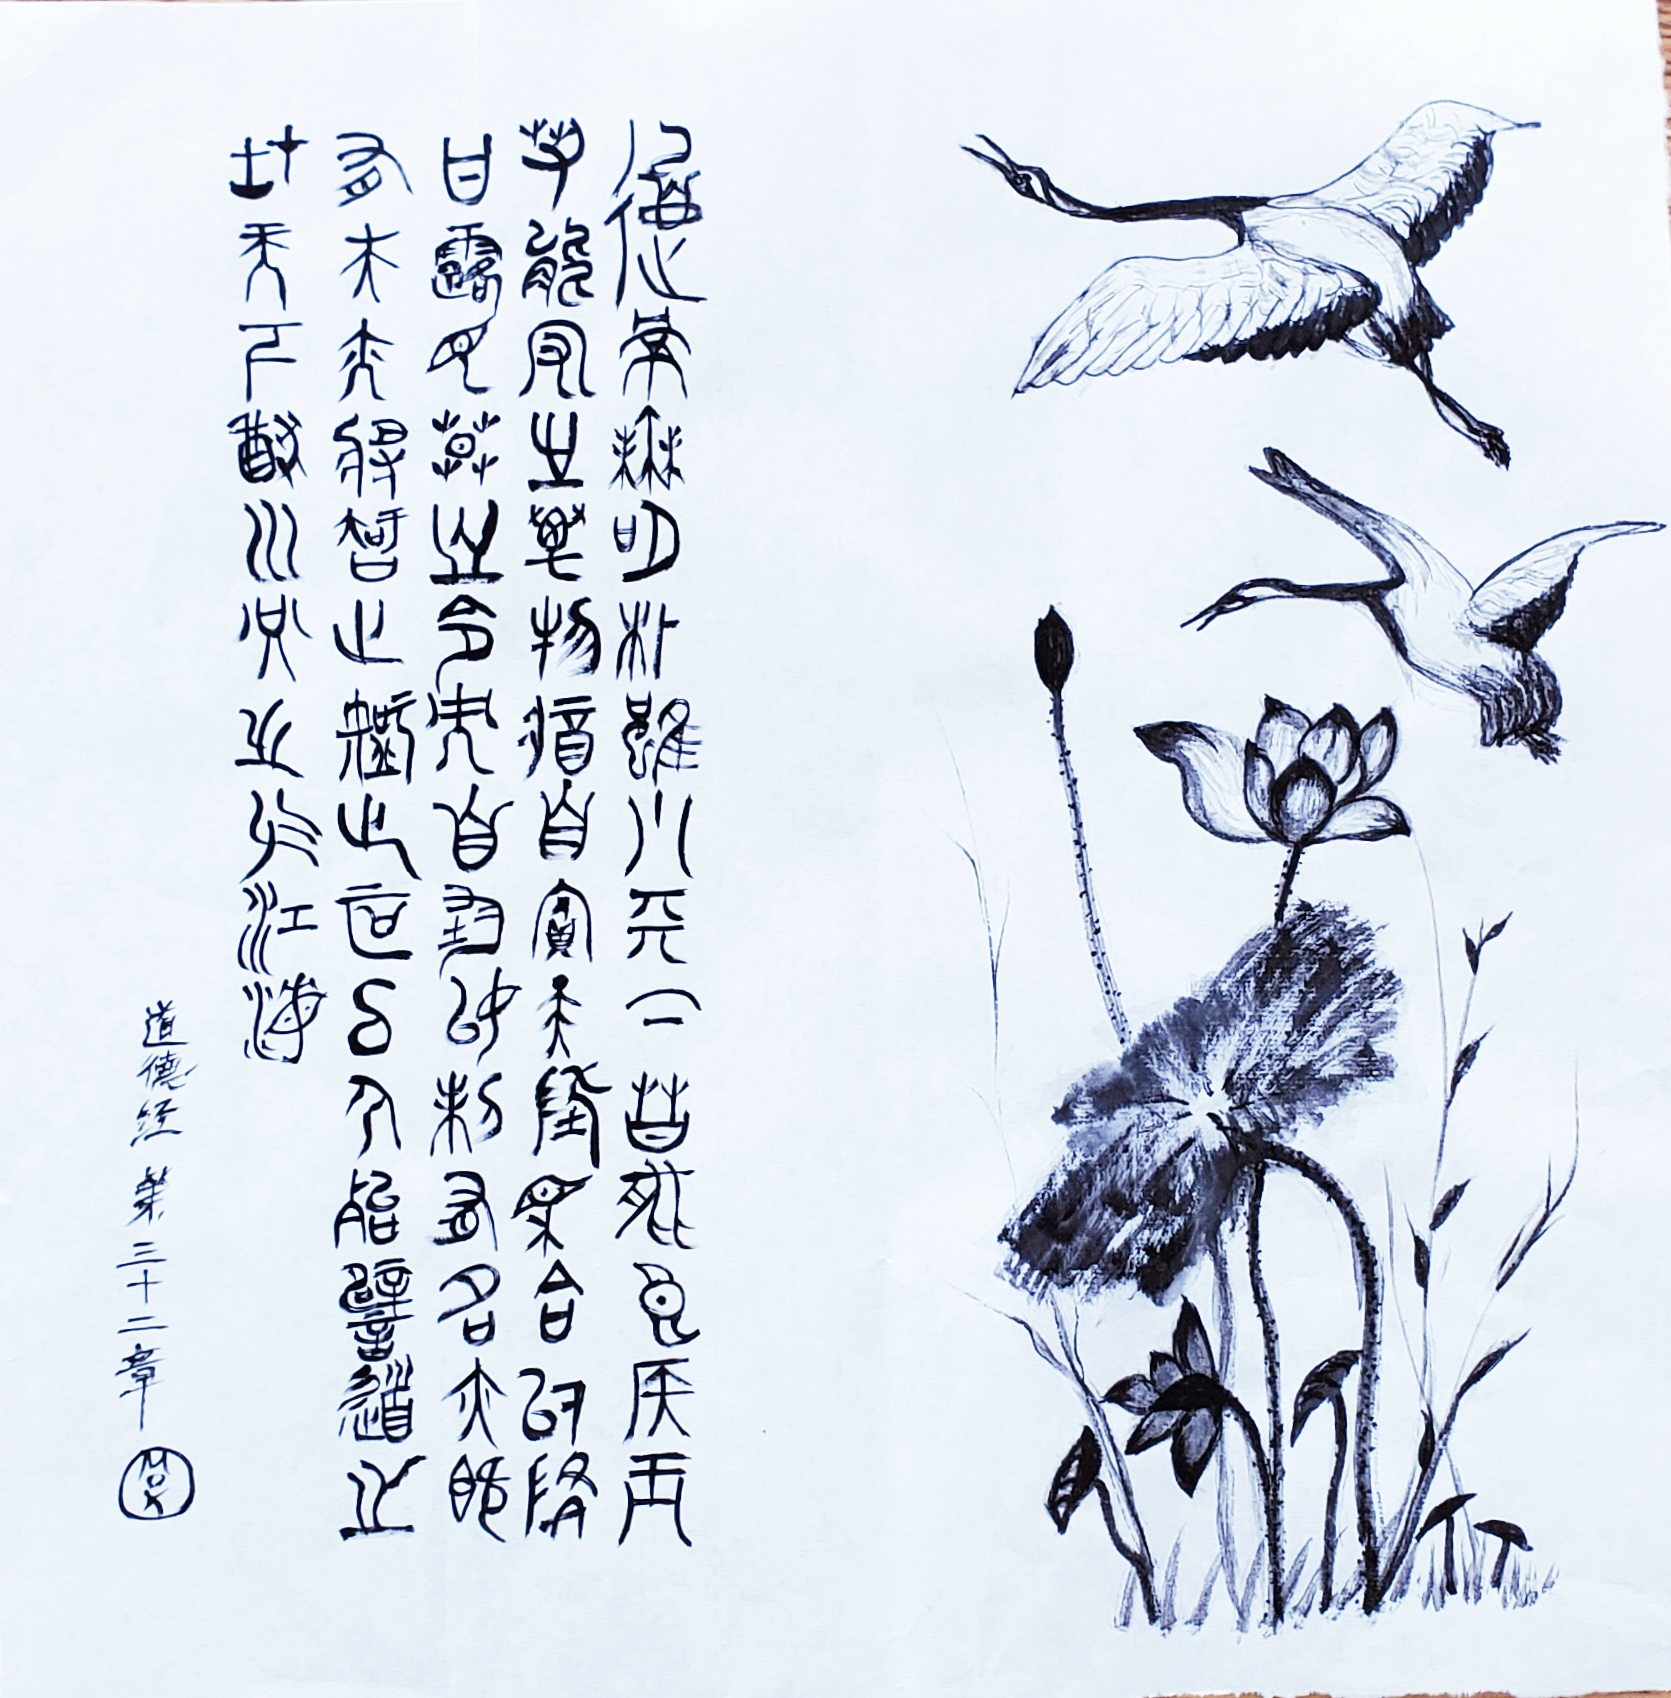 道常無名朴雖小天下莫臣侯王
若能守之萬物將自賓天地相合以降
甘露民莫之令而自均始制有名亦既
有夫亦將知止知止所以不殆譬道之
在天下猷川谷之於江海
道德经 第三十二章
MOX